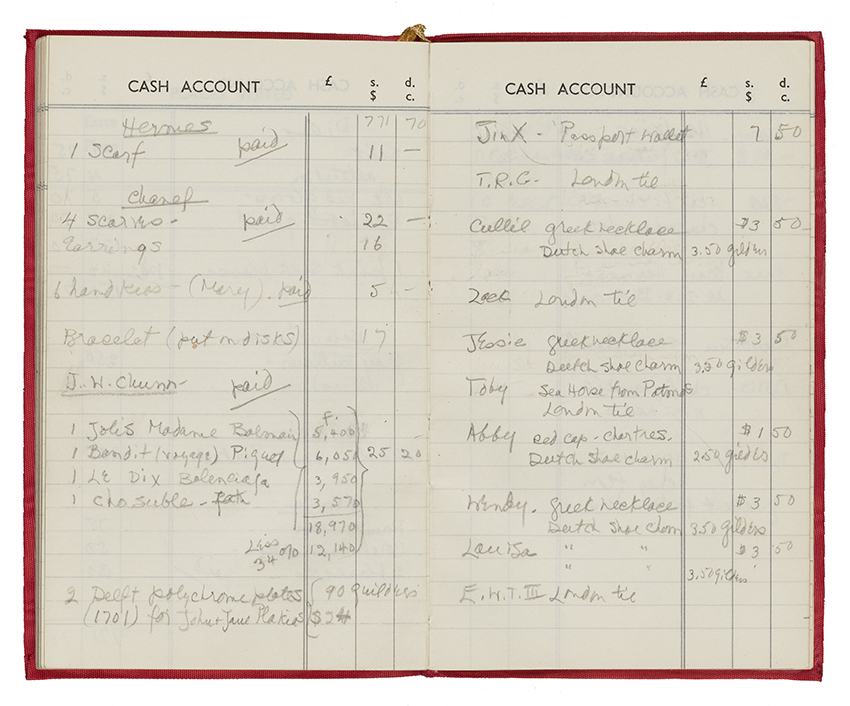 CASH ACCOUNT £ s. $ d. c.
Hermes 771 70
1 Scarf paid 11 —
Chanel
4 Scarves - paid 22 —
Earrings 16
6 handkies - (Mary). paid 5 -
Bracelet (put on disks) 17
J. W. Chunn - paid
f.
1 Jolis Madame Balmain 5,400
1 Bandit (voyage) Piguet 6,050 25 20
1 Le Dix Balenciaga 3,950
1 Chasuble - 3,570
18,970
Less 34% 12,140
2 Delft polychrome plates 90 guilders
(1701) for John & Jane Plakias $24
CASH ACCOUNT £ s. $ d. c.
Jinx - Passport Wallet 7 50
T.R.G. - London tie
greek necklace $3 50
Dutch shoe charm 3.50 gilders
Zack London tie
Jessie greek necklace $3 50
Dutch shoe charm 3.50 gilders
Toby Sea Horse from
London tie
Abby red cap - chartres. $1 50
Dutch shoe charm 2.50 gilders
Wendy. greek necklace $3 50
Dutch shoe charm 3.50 gilders
Louisa " " $3 50
" " 3.50 gilders
E.W.T. III London tie